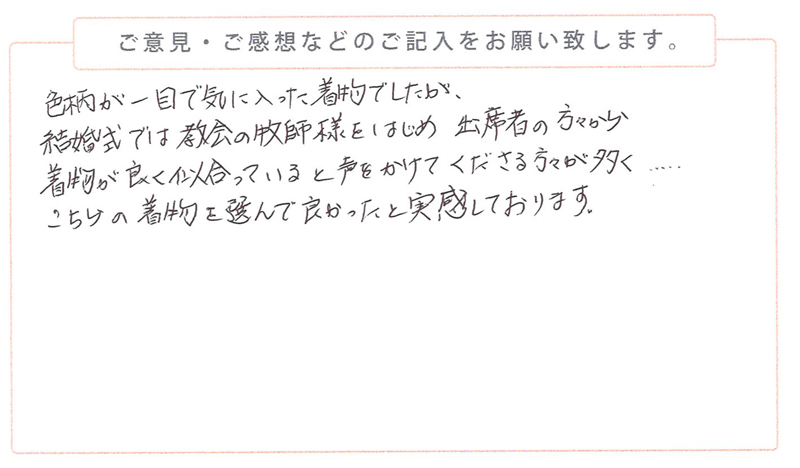 ご意見・ご感想などのご記入をお願い致します。
色柄が一目で気に入った着物でしたが、
結婚式では教会の牧師様をはじめ 出席者の方々から
着物が良く似合っていると声をかけてくださる方々が多く……
こちらの着物を選んで良かったと実感しております。